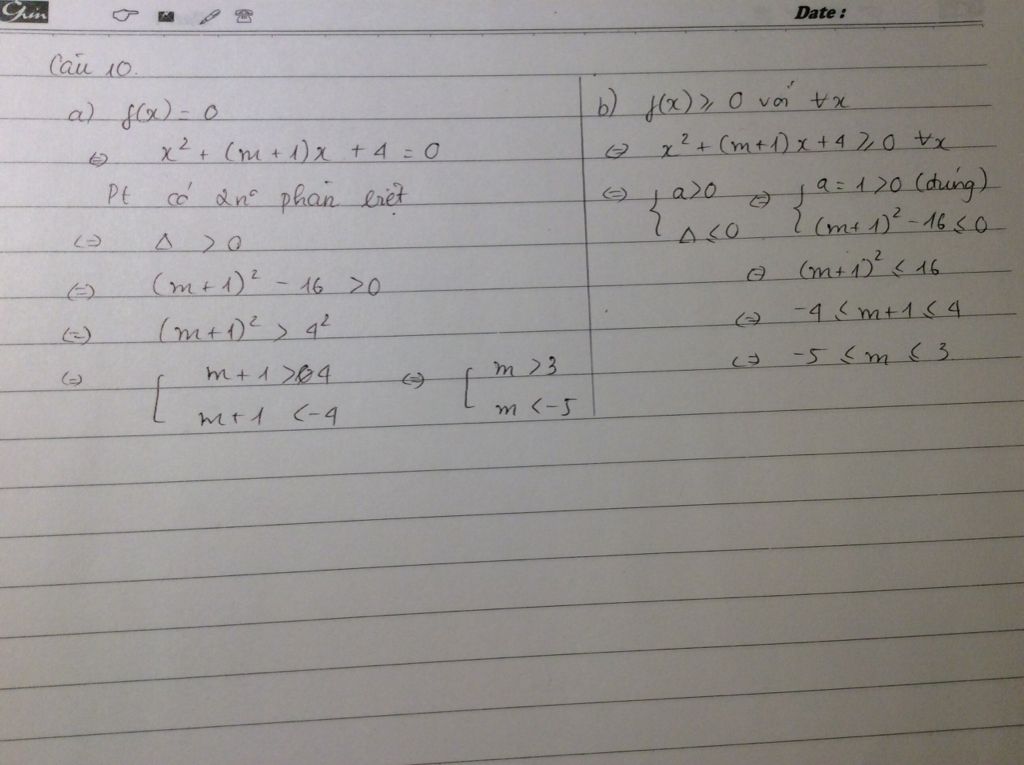 Chin
Date :
Câu 10.
a) f(x) = 0
⇔ x² + (m+1)x + 4 = 0
Pt có 2n° phân biệt
⇔ Δ > 0
⇔ (m+1)² - 16 > 0
⇔ (m+1)² > 4²
⇔ [ m+1 > 4 ⇔ [ m > 3
m+1 < -4 m < -5
b) f(x) ≥ 0 với ∀x
⇔ x² + (m+1)x + 4 ≥ 0 ∀x
⇔ { a>0 ⇔ { a = 1>0 (đúng)
Δ ≤ 0 (m+1)² - 16 ≤ 0
⇔ (m+1)² ≤ 16
⇔ -4 ≤ m+1 ≤ 4
⇔ -5 ≤ m ≤ 3